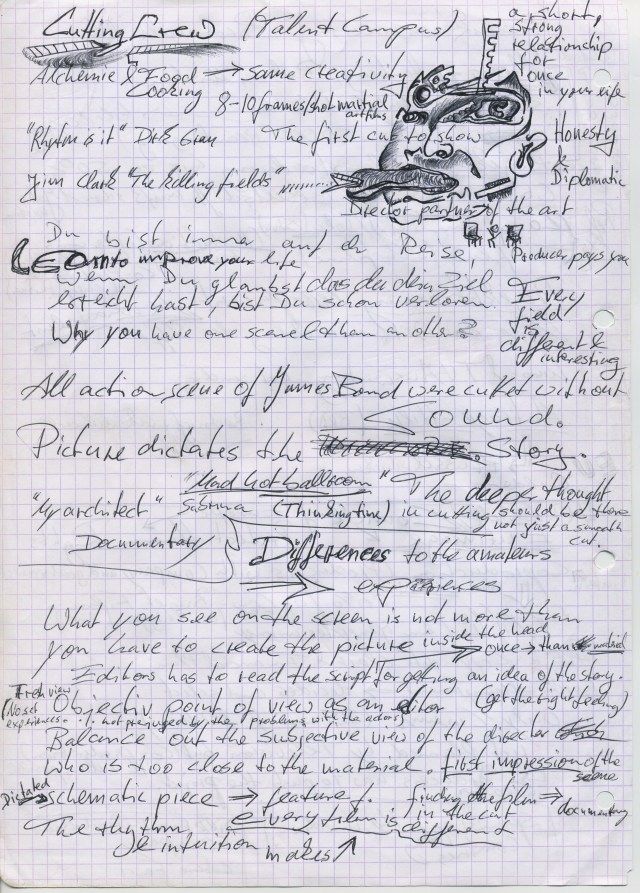 Cutting Crew (Talent Campus)
a short, strong relationship for once in your life
Alchemie & Food Cooking → same creativity
8-10 frames/shot martial
"Rhythm is it" Dirk Grau The first cut to show
Honesty & Diplomatic
Jim Clark "The killing fields"
Director partner of the art
Du bist immer auf der Reise,
Producer pays you
LEO to improve your life
wenn Du glaubst das du dein Ziel
erreicht hast, bist Du schon verloren.
Every field is different & interesting
Why you have one scene than another?
All action scene of James Bond were cuttet without
Sound.
Picture dictates the Story.
"Mad hot ballroom" The deeper thought
"My architect" Sabrina (Thinking time) in cutting should be there
not just a smooth cut.
Documentary
Differences to the amateurs
experiences
What you see on the screen is not more than
you have to create the picture inside the head
once → than
Editors has to read the script for getting an idea of the story.
Fresh view
(No set experiences.
Objectiv point of view as an editor (get the right feeling)
not prejuged by the problems with the actors)
Balance out the subjective view of the director
who is too close to the material. first impression of the scene
Dictated
schematic piece ⇒ feature f. finding the film in the cut ⇒ documentary
The rhythm every film is different
& intuition makes